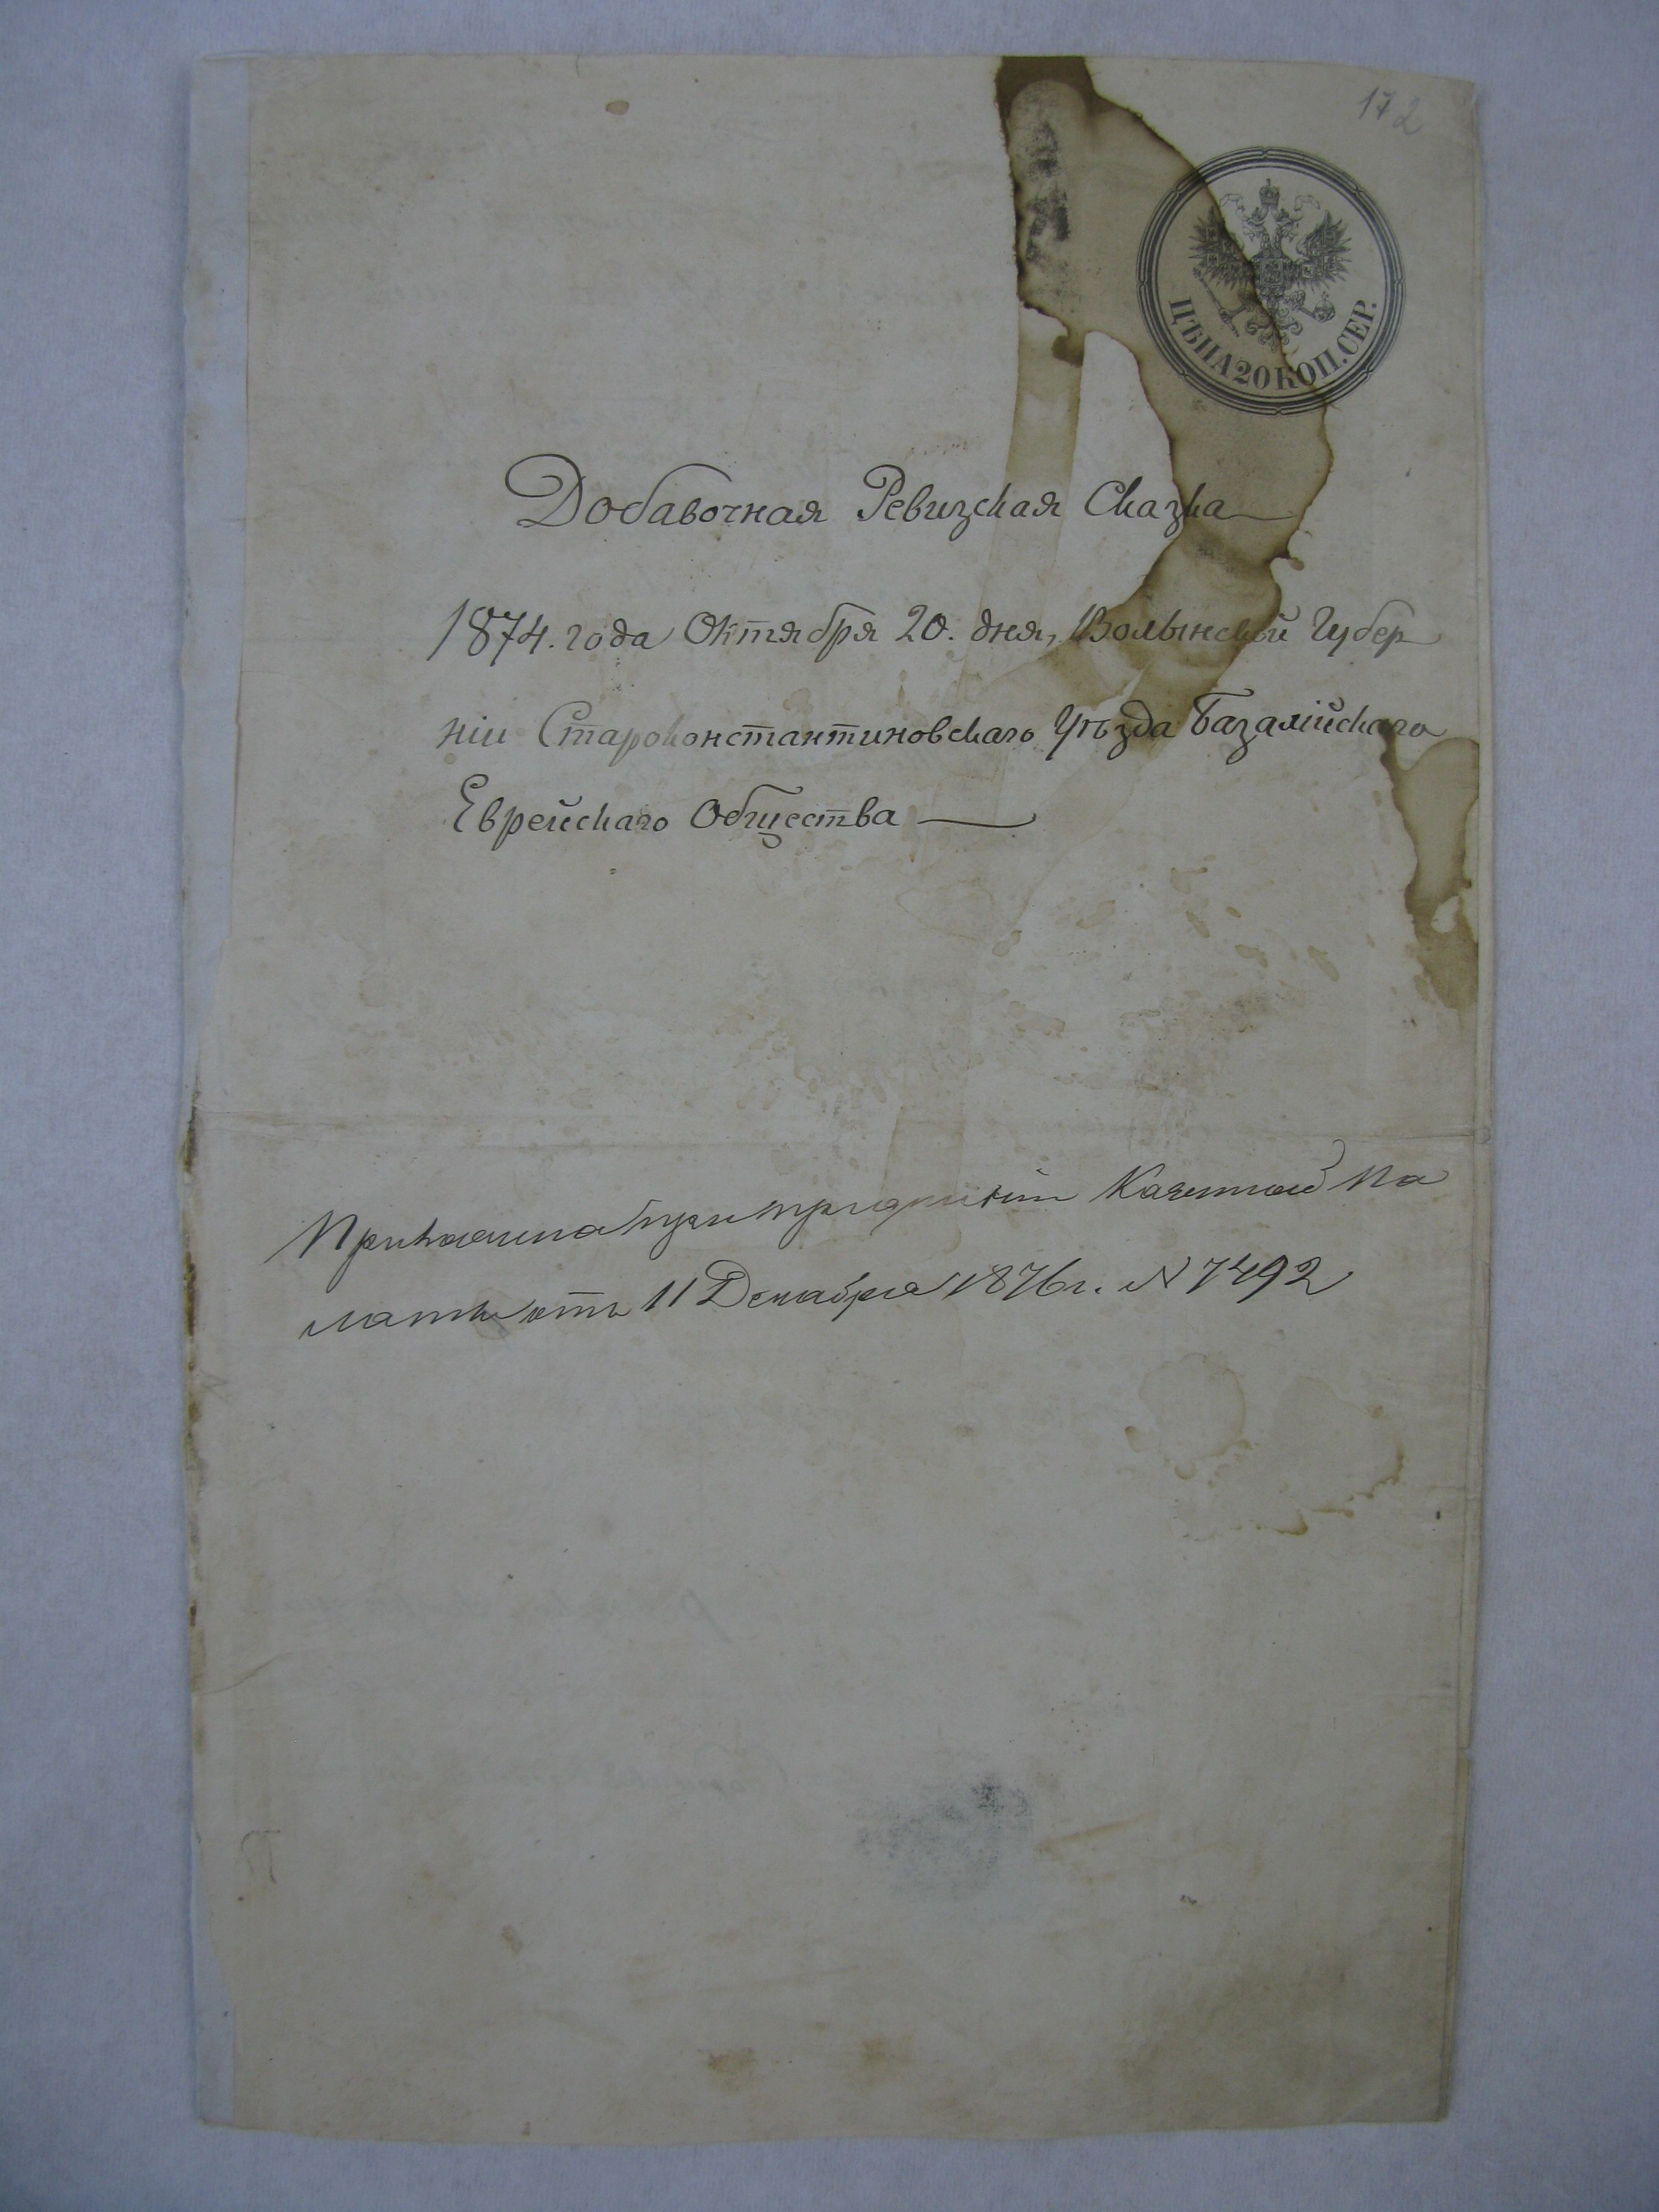 172
ЦѢНА 20 КОП. СЕР.
Добавочная Ревизская Сказка
1874. года Октября 20. дня, Волынской Губер
ніи Староконстантиновскаго Уѣзда Базалійскаго
Еврейскаго Общества
при Казенной Па
латы отъ 11 Декабря 1876 г. N 7492